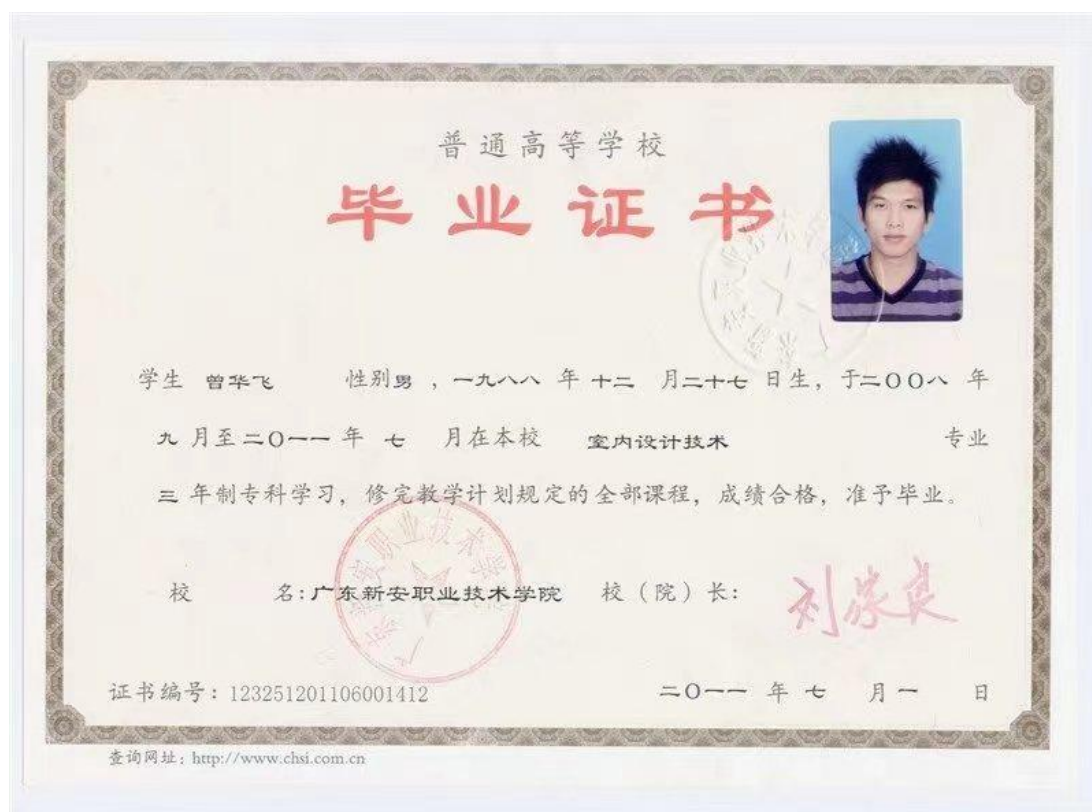 普通高等学校
毕业证书
学生 曾华飞 性别男，一九八八 年 十二 月二十七 日生，于二00八 年
九 月至二0一一 年 七 月在本校 室内设计技术 专业
三 年制专科学习，修完教学计划规定的全部课程，成绩合格，准予毕业。
广东新安职业技术学院
校 名:广东新安职业技术学院 校（院）长:
证书编号：123251201106001412 二0一一 年 七 月 一 日
查询网址：http://www.chsi.com.cn